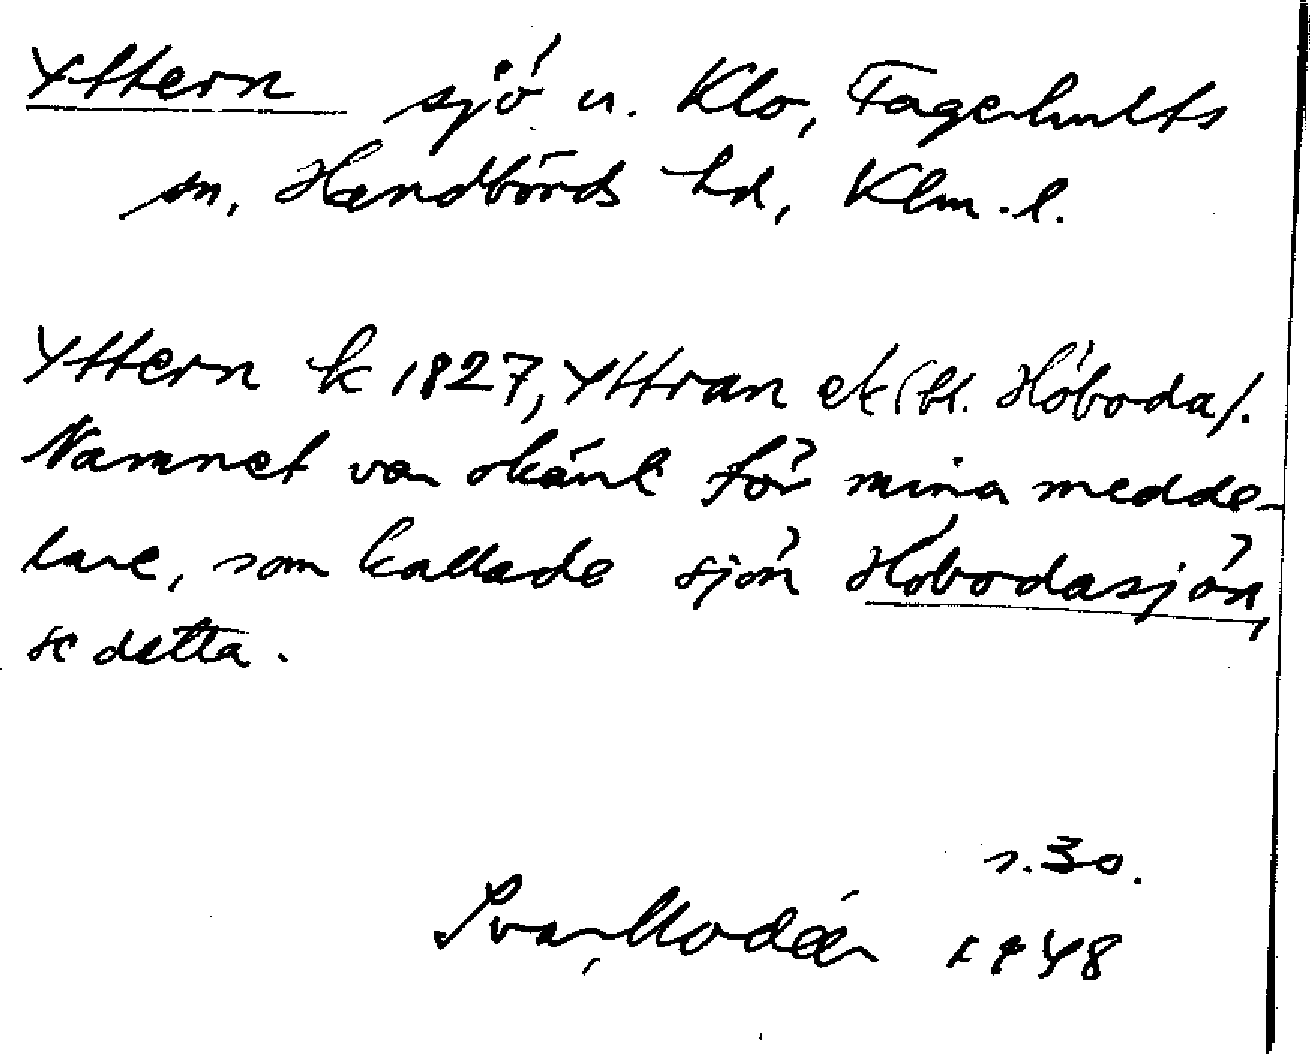 Yttern sjö u. Klo, Fagerhults
sn, Handbörds hd, Klm. l.
Yttern k 1827, Yttran ek (bl. Höboda).
Namnet var okänt för mina medde-
lare, som kallade sjön Höbodasjön,
se detta.
s. 30.
Ivar Modéer 1948